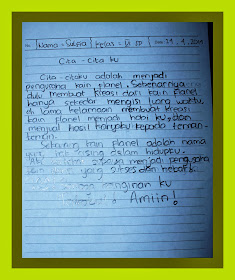 Nama: Sukma kelas: VI SD 21.4.2015
Cita - Cita ku
Cita - citaku adalah menjadi
pengusaha kain planel. Sebenarnya
dulu membuat kreasi dari kain planel
hanya sekedar mengisi luang waktu,
lama kelamaan membuat kreasi
kain planel menjadi hobi ku, dan
menjual hasil karyaku kepada teman-
teman.
Sekarang kain planel adalah nama
yang tak asing dalam hidupku.
menjadi pengusaha
yang sukses dan hebat.
ku
Amiin.